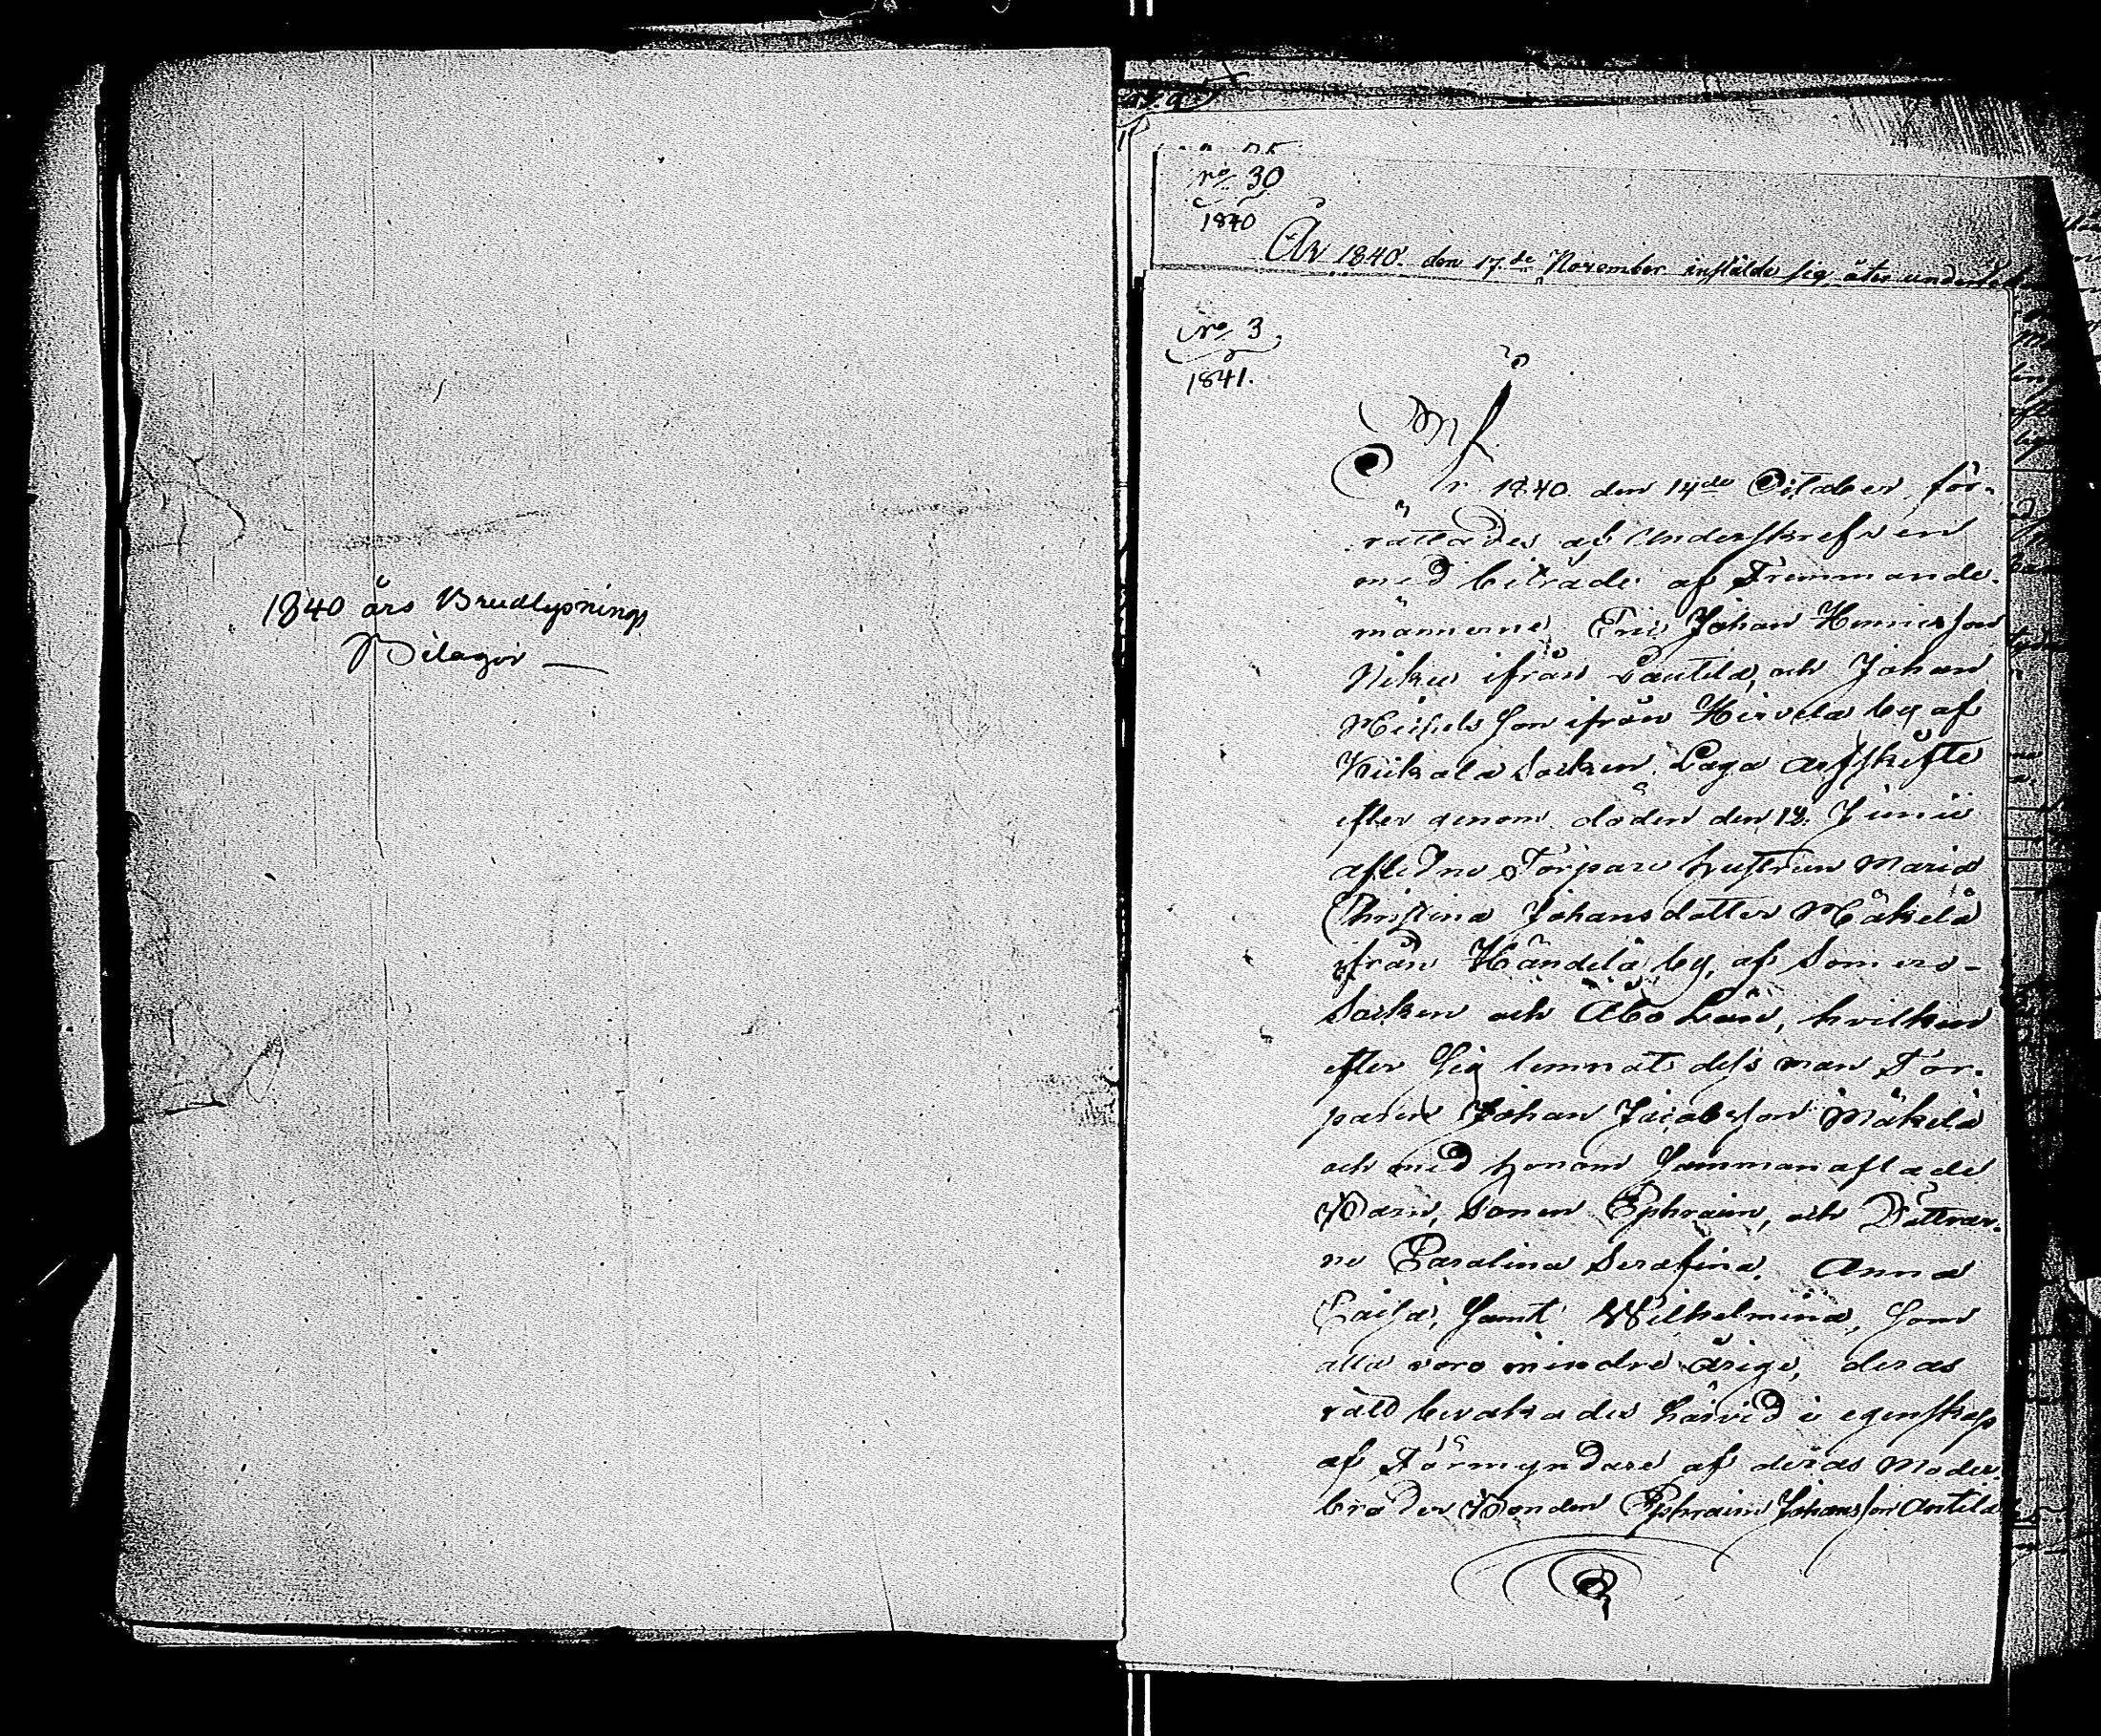 1840 års Brudlysnings
Bilagor —
No 30
1840
År 1840. den 17.de November instälde sig åter
No 3.
1841.
År 1840 den 14de October för-
rättades af Underskrefven
med biträde af Fremmande
männerne Eric Johan Henricsson
ifrån och Johan
Michelsson ifrån Hirvelä by af
Kiikala Socken Laga arfskifte
efter genom döden den 12. Junii
aflidne Torpare hustrun Maria
Christina Johansdotter Mäkelä
ifrån Händelä by, af Somero-
Socken och Åbo Län, hvilken
efter sig lemnat dess man Tor-
paren Johan Jacobsson Mäkelä
och med honom sammanaflade
Barn, Sonen Ephraim, och Döttrar-
ne Carolina Serafina, Anna
Caisa, samt Wilhelmina, som
alla voro mindre årige, deras
rätt bevakades härvid i egenskap
af Förmyndare af deras Moder
broder Bonden Ephraim Johansson Antila